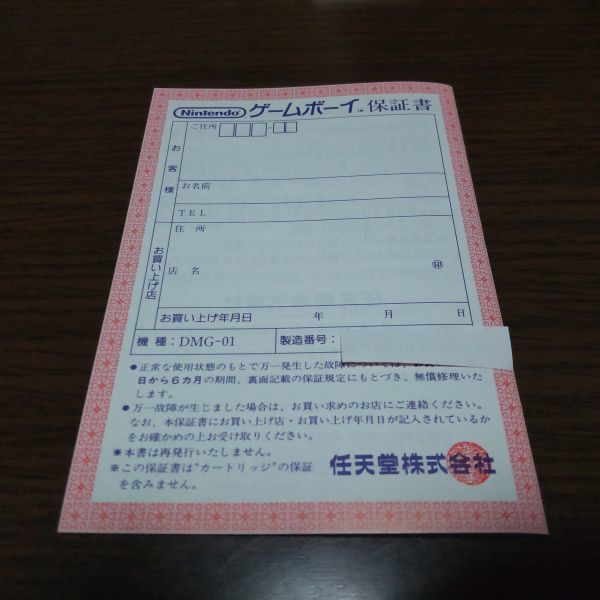 Nintendo ゲームボーイ™ 保証書
お客様
ご住所
お名前
TEL
お買い上げ店
住 所
店 名
印
お買い上げ年月日 年 月 日
機 種：DMG-01 製造番号：
●正常な使用状態のもとで万一発生した故障については、
日から6カ月の期間、裏面記載の保証規定にもとづき、無償修理いた
します。
●万一故障が生じました場合は、お買い求めのお店にご連絡ください。
なお、本保証書にお買い上げ店・お買い上げ年月日が記入されているか
をお確かめの上お受け取りください。
※本書は再発行いたしません。
※この保証書は"カートリッジ"の保証
を含みません。
任天堂株式会社